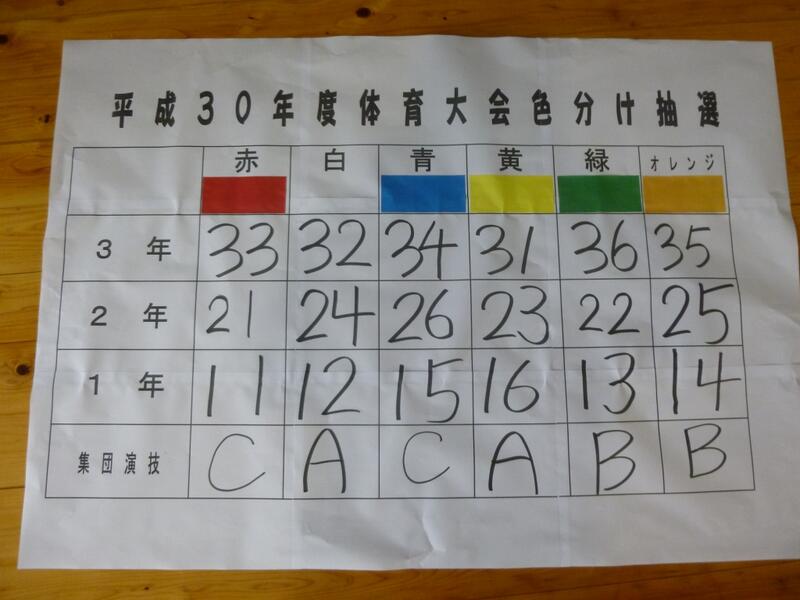 平成30年度体育大会色分け抽選
赤 白 青 黄 緑 オレンジ
3年 33 32 34 31 36 35
2年 21 24 26 23 22 25
1年 11 12 15 16 13 14
集団演技 C A C A B B